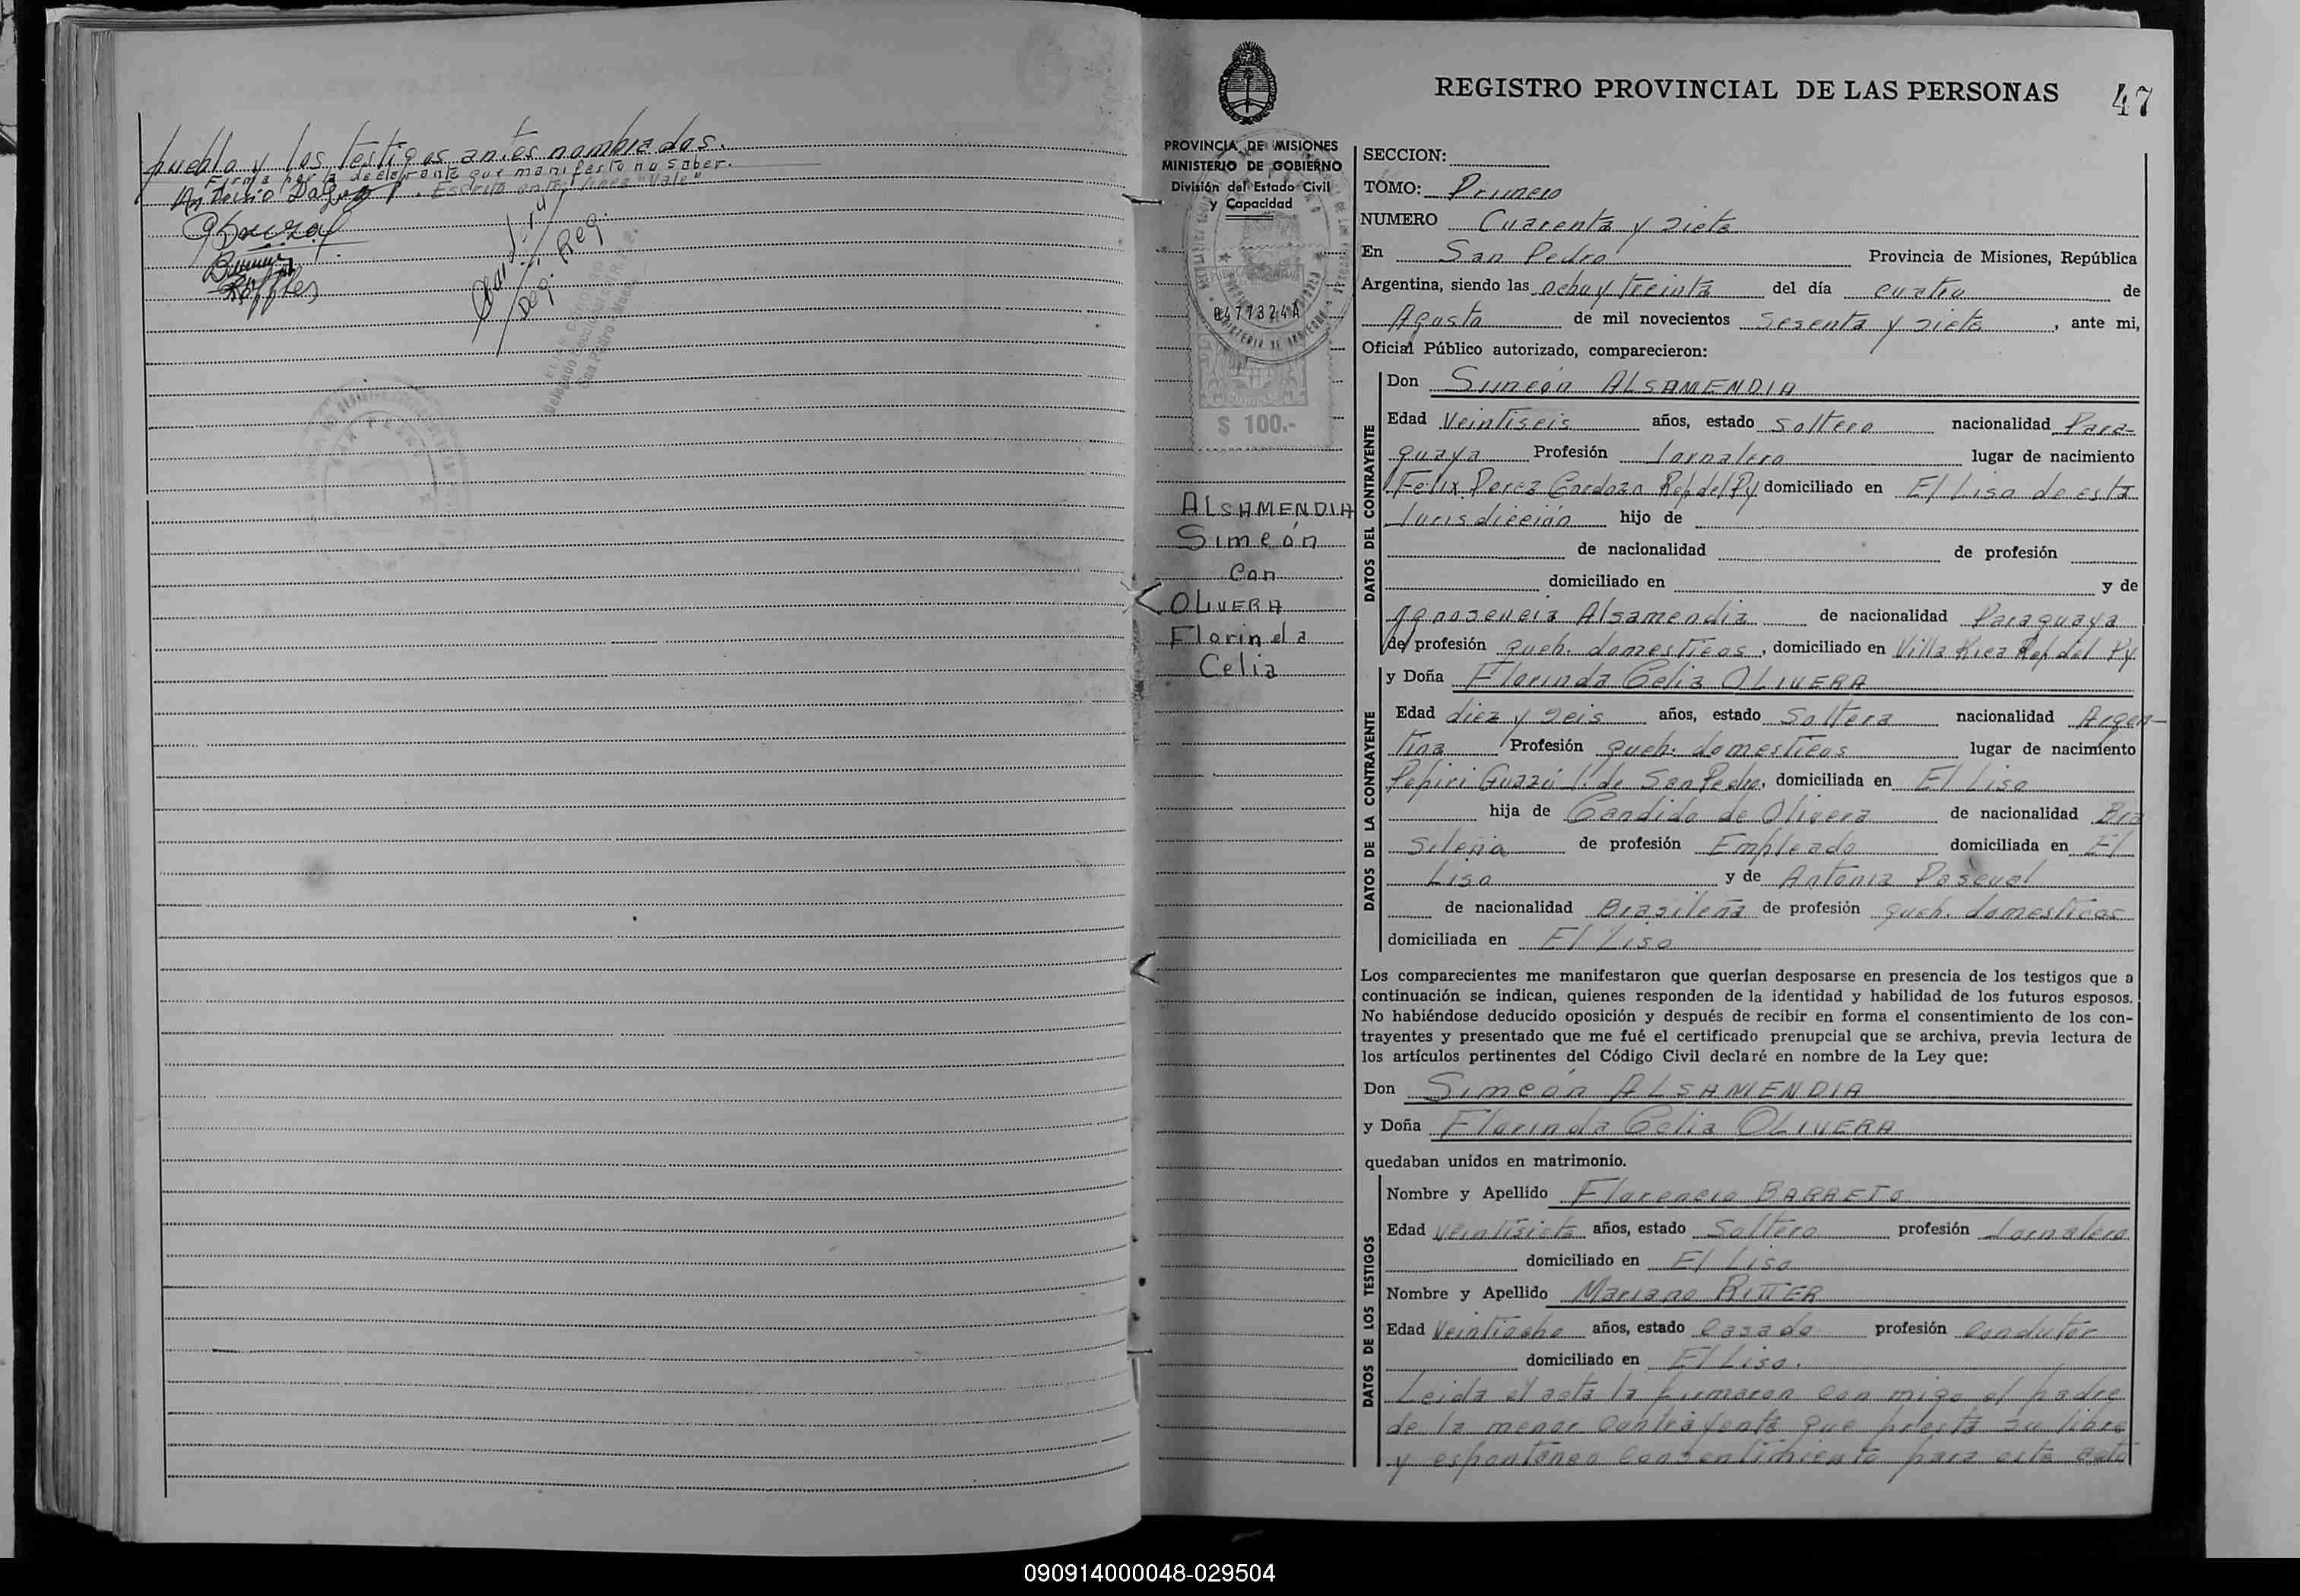 pueblo y los testigos antes nombrados.
Firma por la declarante que manifesto no saber.
Escrito entre linea "Vale"
Deg. Reg.
REGISTRO PROVINCIAL DE LAS PERSONAS
47
PROVINCIA DE MISIONES
MINISTERIO DE GOBIERNO
División del Estado Civil
y Capacidad
0477324A
$ 100.-
ALSAMENDIA
Simeón
Con
OLIVERA
Florinda
Celia
SECCION:
TOMO: Primero
NUMERO Cuarenta y siete
En San Pedro Provincia de Misiones, República
Argentina, siendo las ocho y treinta del día cuatro de
Agosto de mil novecientos sesenta y siete, ante mi,
Oficial Público autorizado, comparecieron:
DATOS DEL CONTRAYENTE
Don Simeón ALSAMENDIA
Edad Veintiseis años, estado soltero nacionalidad Para-
guaya Profesión Jornalero lugar de nacimiento
Felix Perez Cardozo Rep del Py domiciliado en El Liso de esta
Jurisdicción hijo de
de nacionalidad de profesión
domiciliado en y de
Alsamendia de nacionalidad Paraguaya
de profesión queh. domesticos, domiciliado en Villa Rica Rep del Py
DATOS DE LA CONTRAYENTE
y Doña Florinda Celia OLIVERA
Edad diez y seis años, estado Soltera nacionalidad Argen-
tina Profesión queh. domesticos lugar de nacimiento
Pepiri Guazú J. de San Pedro, domiciliada en El Liso
hija de Candido de Olivera de nacionalidad Bra
sileña de profesión Empleado domiciliada en El
Liso y de Antonia Pascual
de nacionalidad Brasileña de profesión queh. domesticos
domiciliada en El Liso
Los comparecientes me manifestaron que querían desposarse en presencia de los testigos que a
continuación se indican, quienes responden de la identidad y habilidad de los futuros esposos.
No habiéndose deducido oposición y después de recibir en forma el consentimiento de los con-
trayentes y presentado que me fué el certificado prenupcial que se archiva, previa lectura de
los artículos pertinentes del Código Civil declaré en nombre de la Ley que:
Don Simeón ALSAMENDIA
y Doña Florinda Celia OLIVERA
quedaban unidos en matrimonio.
DATOS DE LOS TESTIGOS
Nombre y Apellido Florencio BARRETO
Edad Veintisiete años, estado Soltero profesión Jornalero
domiciliado en El Liso
Nombre y Apellido Mariano RITTER
Edad Veintiocho años, estado Casado profesión Condutor
domiciliado en El Liso.
Leida el acta la firmaron con migo el padre
de la menor contrayente que presta su libre
y espontáneo consentimiento para este acto
090914000048-029504